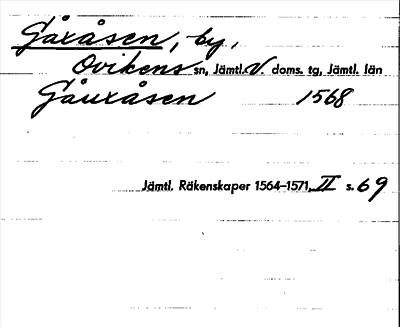 Gåxåsen, by,
Ovikens sn, Jämtl. V. doms. tg, Jämtl. län
Gåuxåsen 1568
Jämtl. Räkenskaper 1564–1571, II s. 69